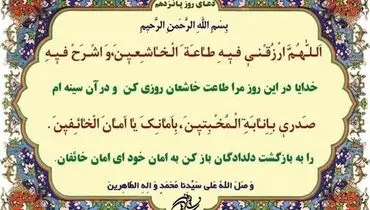 دعای روز پانزدهم
بِسْمِ اللَّهِ الرَّحْمَنِ الرَّحِيمِ
اَللّهُمَّ ارْزُقْنی فیهِ طاعَةَ الْخاشِعینَ وَ اشْرَحْ فیهِ
خدایا در این روز مرا طاعت خاشعان روزی کن و در آن سینه ام
صَدری بِاِنابَةِ الْمُخْبِتینَ، بِاَمانِکَ یا اَمانَ الْخائِفینَ.
را به بازگشت دلدادگان باز کن به امان خود ای امان خائفان.
وَ صَلَ اللهُ عَلی سَیِّدِنا مُحَمَّد وَ الِهِ الطّاهِرینَ